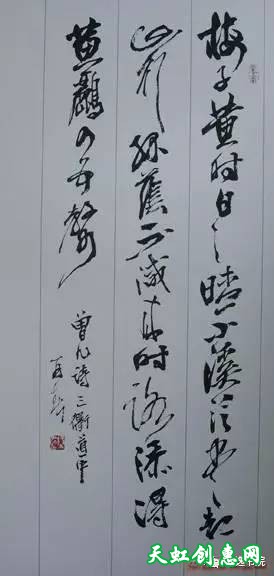 梅子黄时日々晴小溪泛尽却
山行绿荫不减来时路添得
黄鹂四五声
曾几诗三衢道中
天虹创惠网